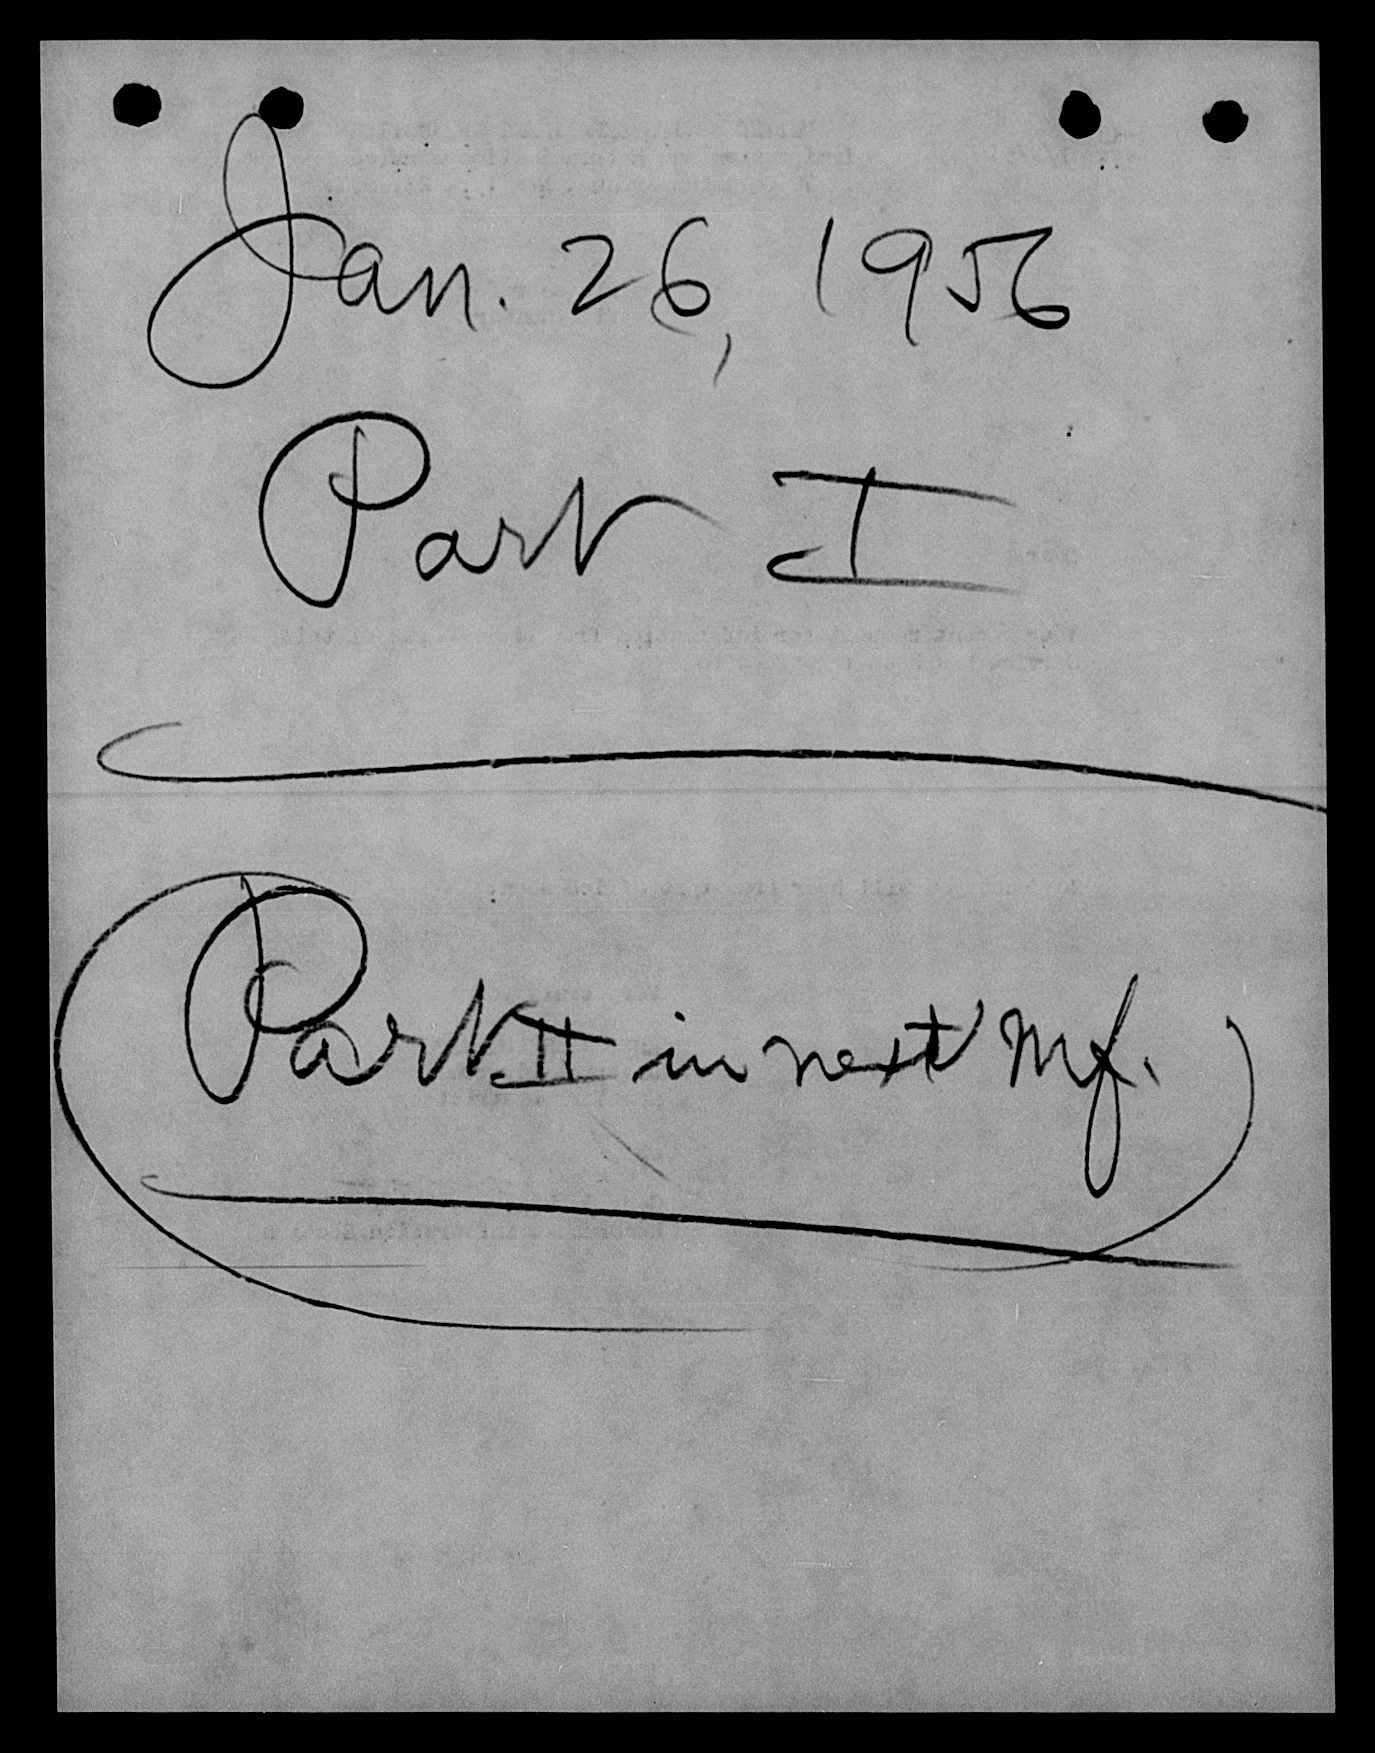 Jan. 26, 1956
Part I
Part II in next Mf.